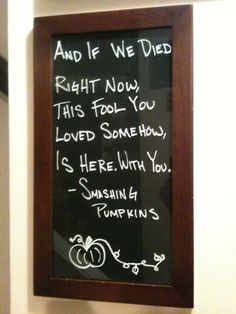 And If We Died
Right Now,
This Fool You
Loved Somehow,
Is Here. With You.
- Smashing
Pumpkins